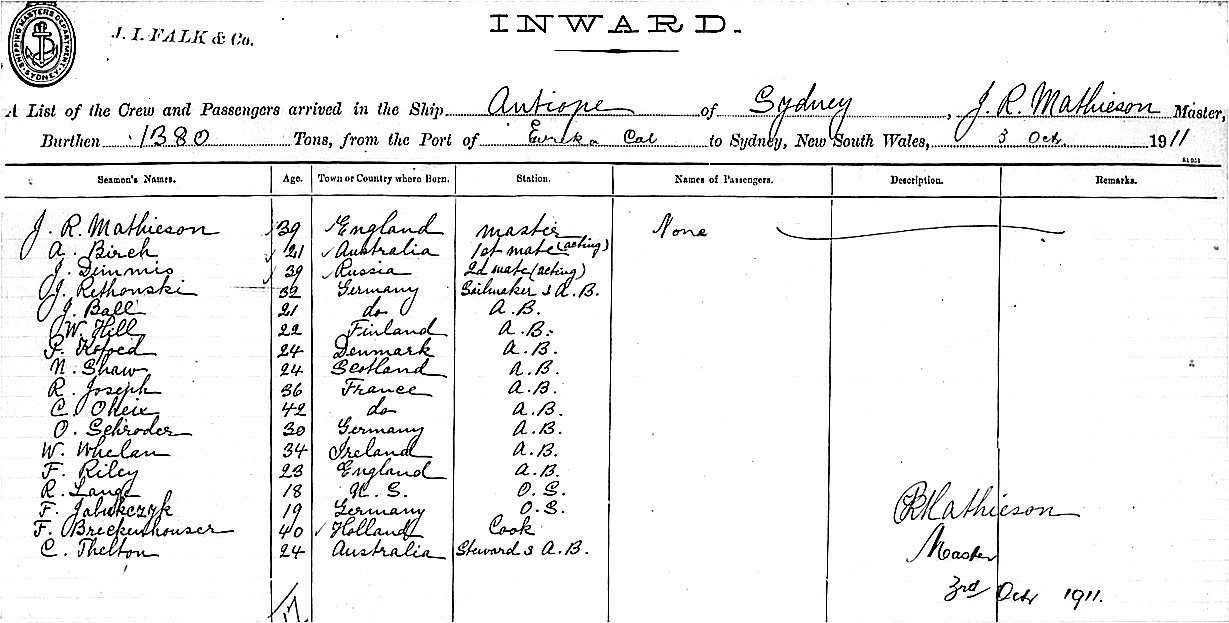 SHIPPING MASTERS DEPARTMENT. SYDNEY.
J. I. FALK & Co.
INWARD.
A List of the Crew and Passengers arrived in the Ship Antiope of Sydney, J. R. Mathieson Master,
Burthen 1380 Tons, from the Port of Eureka Cal to Sydney, New South Wales, 3 Oct. 1911
Seamen's Names. Age. Town or Country where Born. Station. Names of Passengers. Description. Remarks.
J. R. Mathieson 39 England master None
A. Birch 21 Australia 1st mate (acting)
J. Dimmis 39 Russia 2d mate (acting)
J. Rethonski 32 Germany Sailmaker & A.B.
J. Ball 21 do A.B.
W. Hill 22 Finland A.B.
P. Kofoed 24 Denmark A.B.
N. Shaw 24 Scotland A.B.
R. Joseph 36 France A.B.
C. 42 do A.B.
O. Schroder 30 Germany A.B.
W. Whelan 34 Ireland A.B.
F. Riley 23 England A.B.
R. Lange 18 U. S. O. S.
F. 19 Germany O. S.
F. Breckenhouser 40 Holland Cook
C. Thelton 24 Australia Steward & A.B.
17
JRMathieson
Master
3rd Octr 1911.